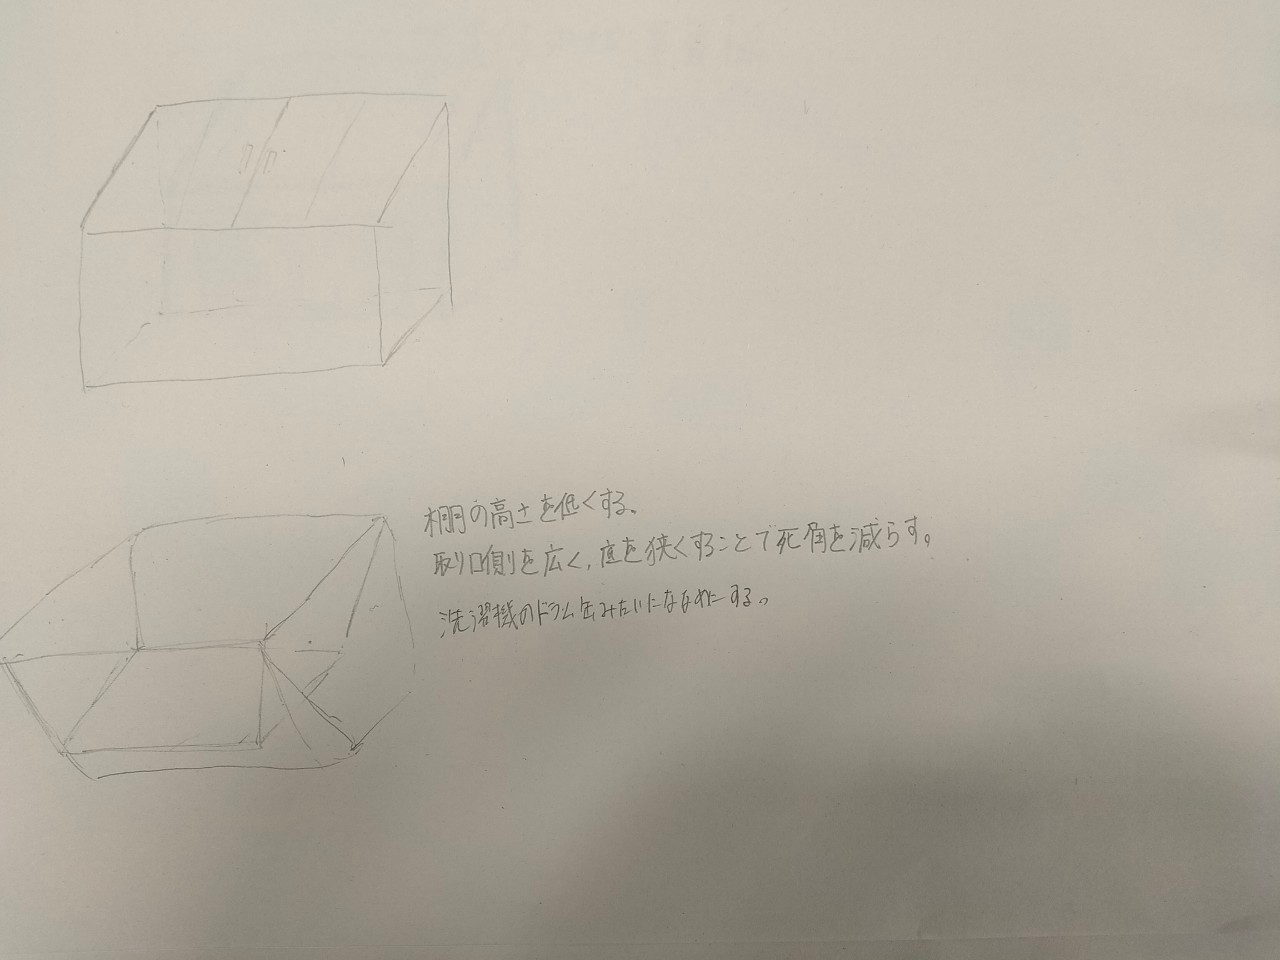 棚の高さを低くする。
取り口側を広く、底を狭くすることで死角を減らす。
洗濯機のドラム缶みたいにななめにする。